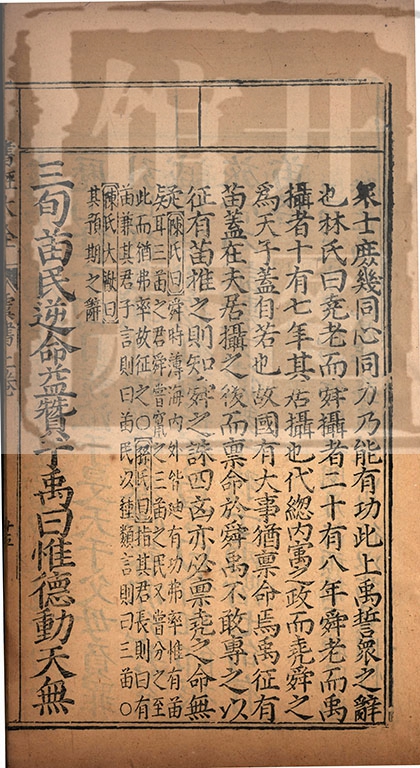 衆士庶幾同心同力乃能有功此上禹誓衆之辭
也林氏曰堯老而舜攝者二十有八年舜老而禹
攝者十有七年其居攝也代總内寓之政而堯舜之
爲天子蓋自若也故國有大事猶禀命焉禹征有
苗蓋在夫居攝之後而禀命於舜禹不敢專之以
征有苗推之則知舜之誅四凶亦必禀堯之命無
疑陳氏曰舜時薄海内外皆迪有功弗率惟有苗
耳三苗之君舜曾竄之三苗之民又曾分之至
此而猶弗率故征之○孫氏曰指其君長則曰有
苗兼其君子言則曰苗民以種類言則曰三苗○
陳氏大猷曰
其預期之辭
三旬苗民逆命益贊于禹曰惟德動天無
書經大全